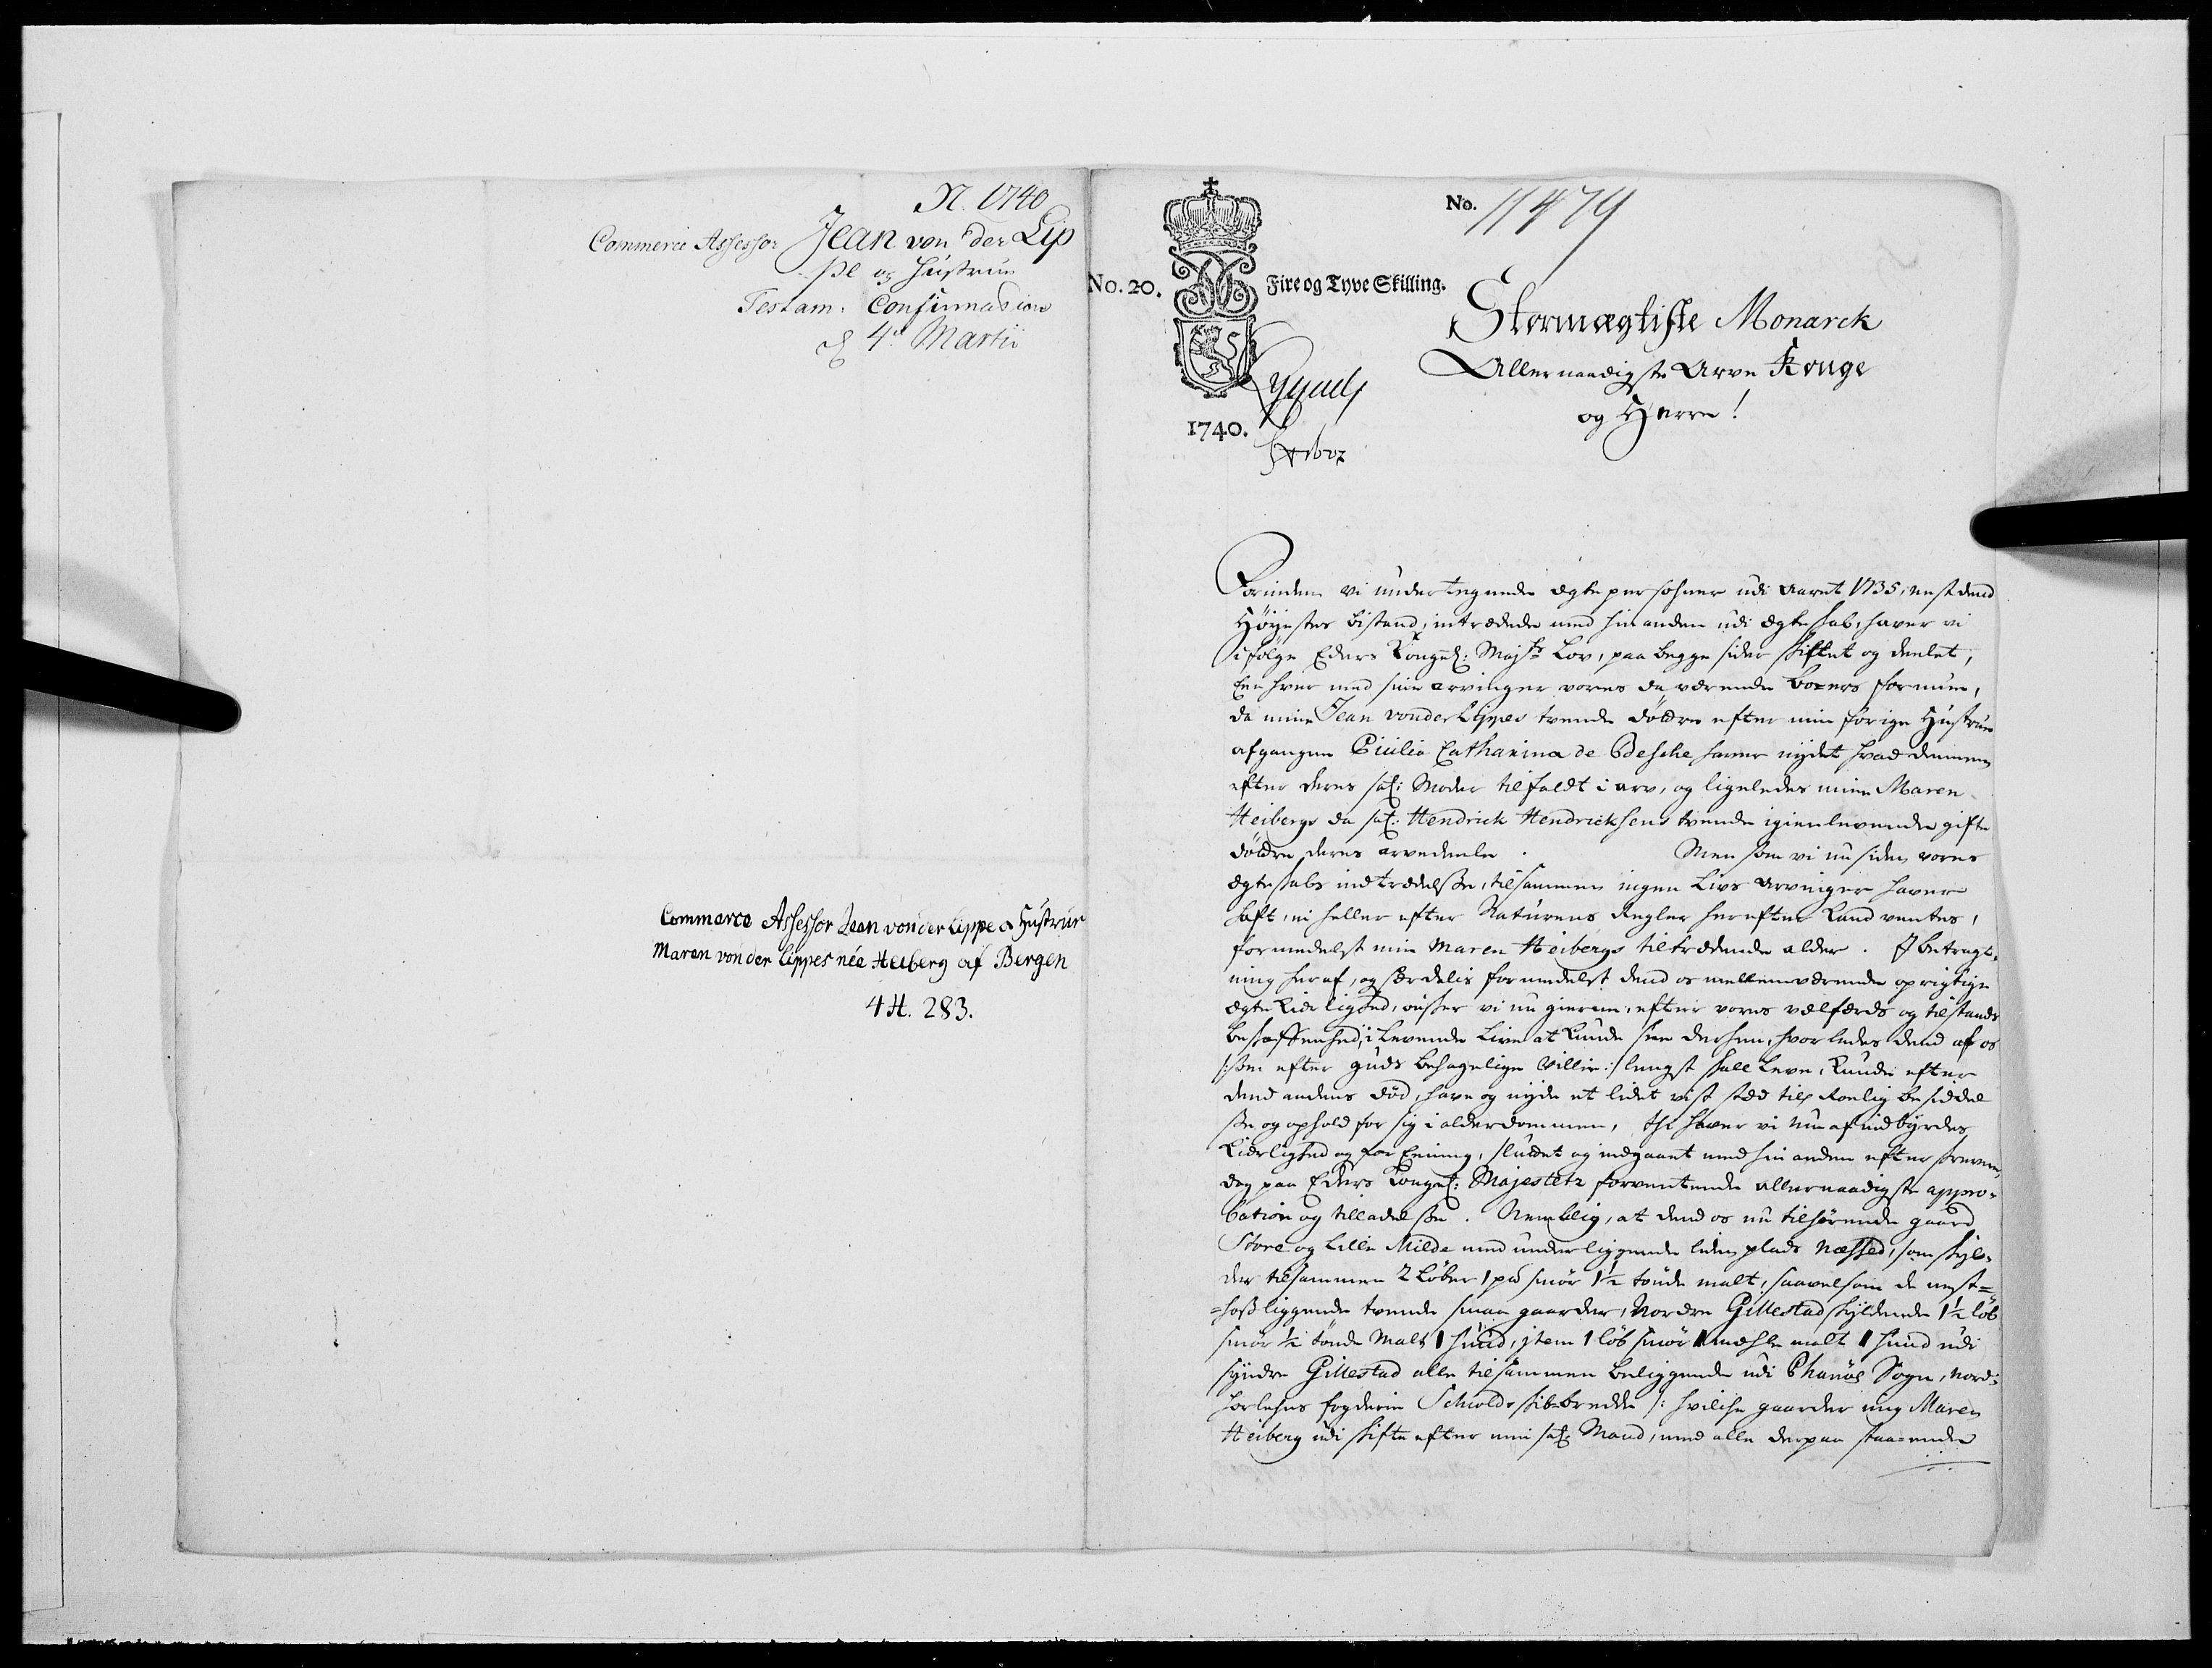 N. 1740
Commerce Assessor Jean von der Lip
pe og Hustrue
Testam. Confirmation
d 4de Martii
Commerce Assessor Jean von der Lippe & Hustrue
Maren von der Lippes née Heiberg af Bergen
4 H. 283.
No. 11479
No. 20. Fire og Tyve Skilling.
1740.
Stormægtiste Monarck
Allernaadigste Arve Konge
og Herre!
Forinden vi undertegnede ægte persohner udi Aaret 1735, nest dend
Høyestes bistand, intrædede med hinanden udi ægteskab, haver vi
ifølge Eders Kongel: Majts Lov, paa begge sider skiftet og deelet,
Een hver med sine arvinger vores da værende Boers formue,
da mine Jean von der Lippes tvende døttre efter min forige Hustrue
afgangne Cicilia Catharina de Besche haver nydet hvad dennem
efter deres sal: Moder tilfaldt i arv, og ligeledes mine Maren
Heibergs da sal: Hendrick Hendricksens tvende igienlevende gifte
døttre deres arvedeele. Men som vi nu siden vores
ægteskabs indtrædelse, tilsammen ingen Livs Arvinger haver
haft, ei heller efter Naturens Regler herefter kand ventes,
formedelst min Maren Heibergs tiltrædende alder. I betragt-
ning heraf, og særdelis formedelst dend os mellemværende oprigtige
ægte Kierlighed, ønsker vi nu gierne, efter vores velfærds og tilstands
beskaffenhed, i Levende Live at kunde see derhen, hvorledes dend af os
/: som efter Guds behagelige Villie :/ lengst skall leve, kunde efter
dend andens død, have og nyde et lidet vist sted till Roelig besiddel
se, og ophold for sig i alderdommen, thi haver vi nu af indbyrdes
Kierlighed og for Eening, sluttet og indgaaet med hinanden efterskrevne,
dog paa Eders Kongel: Majestetz forventende allernaadigste appro-
bation og tilladelse. Nemblig, at dend os nu tilhørende gaard
Store og Lille Milde med underliggende liden plads Næsset, som skyl-
der tilsammen 2 Løber 1 pd smør 1½ tønde malt, saavelsom de nest-
hosliggende tvende smaa gaarder, Nordre Gillestad skyldende 1½ løb
smør ½ tønde Malt 1 hund, item 1 løb smør 1 mæhle malt 1 hund udi
syndre Gillestad alle tilsammen beliggende udi Phanøe Sogn, Nord-
horlehns fogderie Schiolds skibbredde /: hvilke gaarder mig Maren
Heiberg udi skifte efter min sal: Mand, med alle derpaa staaende